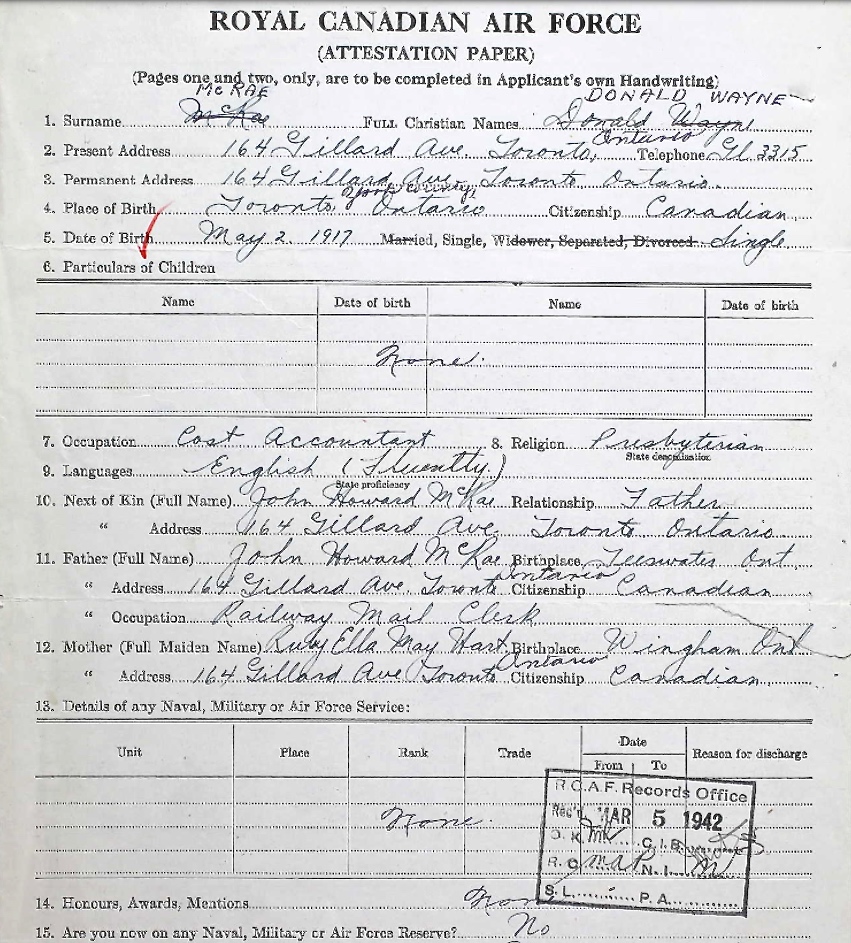 ROYAL CANADIAN AIR FORCE
(ATTESTATION PAPER)
(Pages one and two, only, are to be completed in Applicant's own Handwriting)
McRAE DONALD WAYNE
1. Surname McRae FULL Christian Names Donald Wayne
2. Present Address 164 Gillard Ave. Toronto, Ontario Telephone Gl 3315
3. Permanent Address 164 Gillard Ave. Toronto Ontario.
York County,
4. Place of Birth Toronto Ontario Citizenship Canadian
5. Date of Birth May 2. 1917 Married, Single, Widower, Separated, Divorced Single
6. Particulars of Children
Name Date of birth Name Date of birth
None.
7. Occupation Cost Accountant 8. Religion Presbyterian
State denomination
9. Languages English (Fluently)
State proficiency
10. Next of Kin (Full Name) John Howard McRae Relationship Father
" Address 164 Gillard Ave. Toronto Ontario
11. Father (Full Name) John Howard McRae Birthplace Teeswater Ont
" Address 164 Gillard Ave. Toronto Ontario Citizenship Canadian
" Occupation Railway Mail Clerk
12. Mother (Full Maiden Name) Ella May Hart Birthplace Wingham Ont
" Address 164 Gillard Ave Toronto Ontario Citizenship Canadian
13. Details of any Naval, Military or Air Force Service:
Unit Place Rank Trade Date Reason for discharge
From To
None.
R.C.A.F. Records Office
Rec'd MAR 5 1942
O.K. C.I.B.
R.C. N.I.
S.L. P.A.
14. Honours, Awards, Mentions None
15. Are you now on any Naval, Military or Air Force Reserve? No